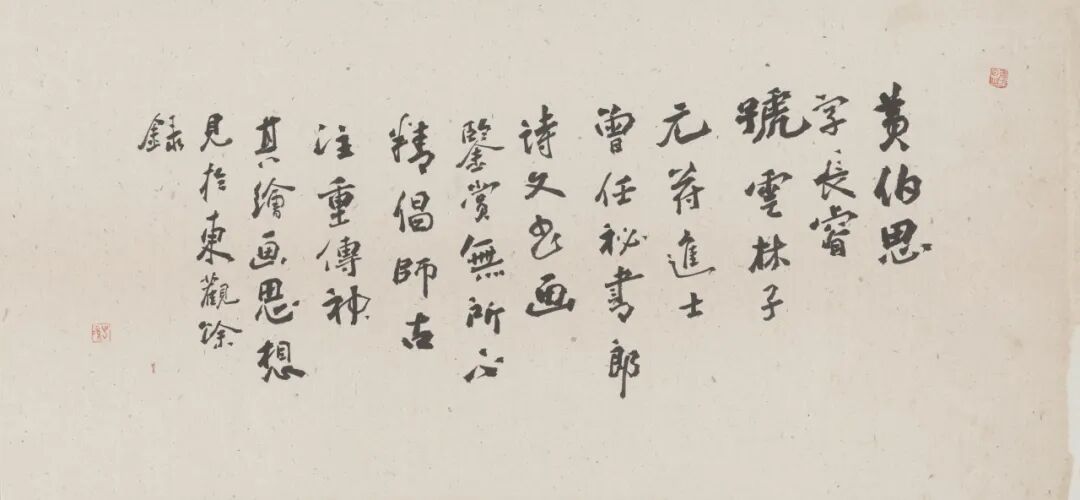 黄伯思
字長睿
號雲林子
元符進士
曾任祕書郎
诗文书画
鑒賞無所不
精倡師古
注重傳神
其繪画思想
見於東觀馀
録